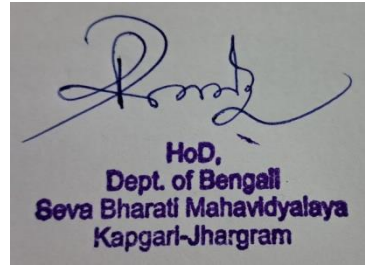 HoD,
Dept. of Bengali
Seva Bharati Mahavidyalaya
Kapgari-Jhargram